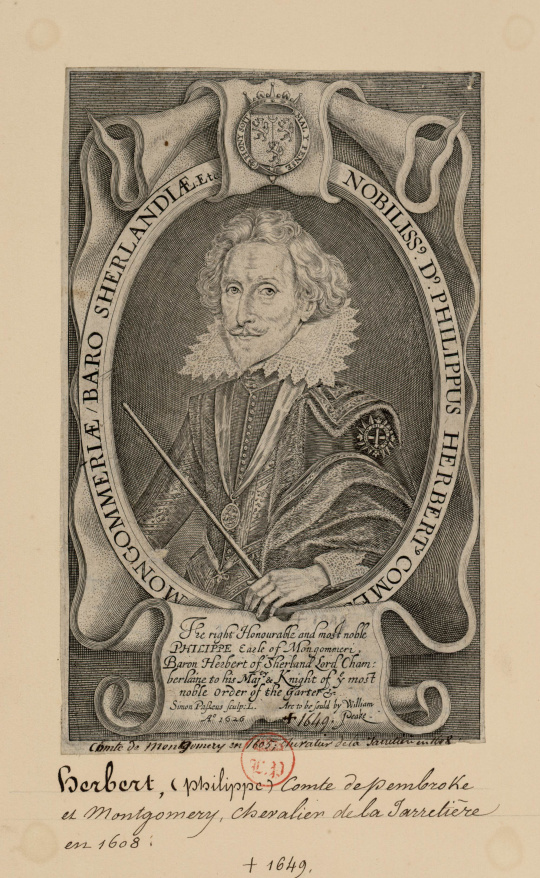 HONY SOIT MAL Y PENSE
NOBILISS⁹. D⁹. PHILIPPUS HERBERT⁹ COMES
MONGOMMERIÆ / BARO SHERLANDIÆ, Etc
The right Honourable and most noble
PHILIPPE Earle of Mongommeri,
Baron Herbert of Sherland Lord Cham:
berlaine to his Maj. & Knight of yͤ most
noble order of the garter &.
Simon Passeus sculp: L. Are to be sould by William
Aº 1626 ✝ 1649. Peake.
Comte de Montgomery en 1605, chevalier de la Jarretière en 1608
Herbert, (philippe) Comte de pembroke
et Montgomery, chevalier de la Jarretière
en 1608.
✝ 1649.